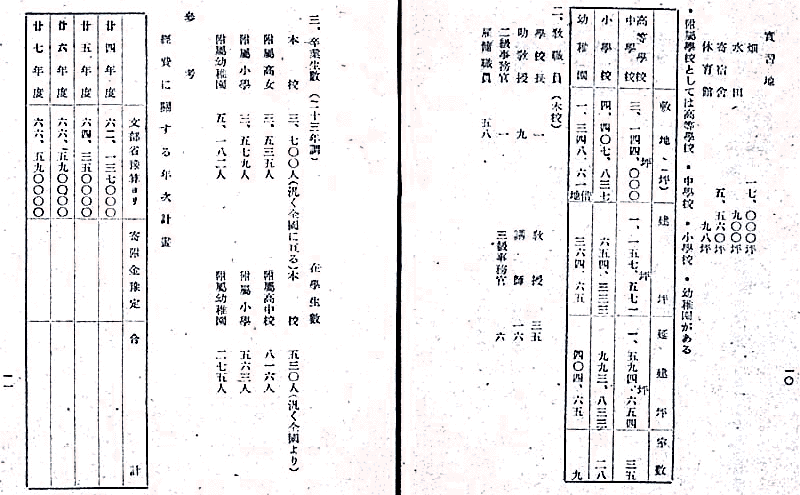 實習地
畑 一七、〇〇〇坪
水田 九〇〇坪
寄宿舍 五、五六〇坪
体育館 九八坪
•附屬學校としては高等學校•中學校•小學校•幼稚園がある
敷地(坪) 建坪 延建坪 室數
高等學校 中學校 三、一四四坪、〇〇〇 一、一五七坪、五七一 一、五九四坪、六五四 三五
小學校 四、四〇七、八三七 六五四、三三三 九九三、八三三 二八
幼稚園 一、三四八、六一借地 三六四、六五 四〇四、六五 九
二、教職員(本校)
學校長 一 教授 三五
助教授 九 講師 一六
二級事務官 一 三級事務官 六
雇傭職員 五八
一〇
三、卒業生數(二十三年調) 在學生數
本校 三、七〇〇人(汎く全國に亙る) 本校 五三〇人(汎く全國より)
附屬高女 三、五三五人 附屬高中校 八一六人
附屬小學 三、五七九人 附屬小學 五六三人
附屬幼稚園 五、一八二人 附屬幼稚園 二七五人
參考
經費に關する年次計畫
文部省豫算ヨリ 寄附金豫定 合計
廿四年度 六二、一三七〇〇〇
廿五年度 六四、三五〇〇〇〇
廿六年度 六六、五九〇〇〇〇
廿七年度 六六、五九〇〇〇〇
一一